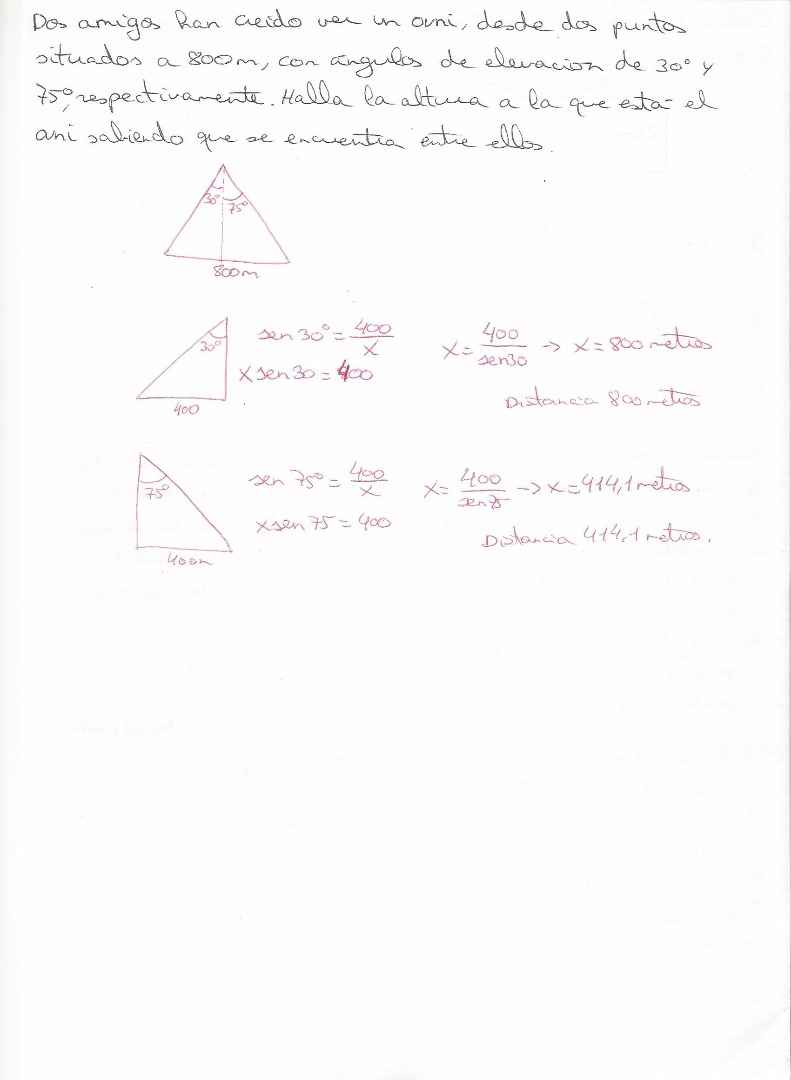 Dos amigos han creido ver un ovni, desde dos puntos
situados a 800m, con ángulos de elevacion de 30° y
75°, respectivamente. Halla la altura a la que está el
ovni sabiendo que se encuentra entre ellos.
30° 75°
800m
30°
400
sen 30° = 400/x
x sen 30 = 400
x = 400/sen30 → x = 800 metros
Distancia 800 metros
75°
400m
sen 75° = 400/x
x sen 75 = 400
x = 400/sen75 → x = 414,1 metros.
Distancia 414,1 metros.